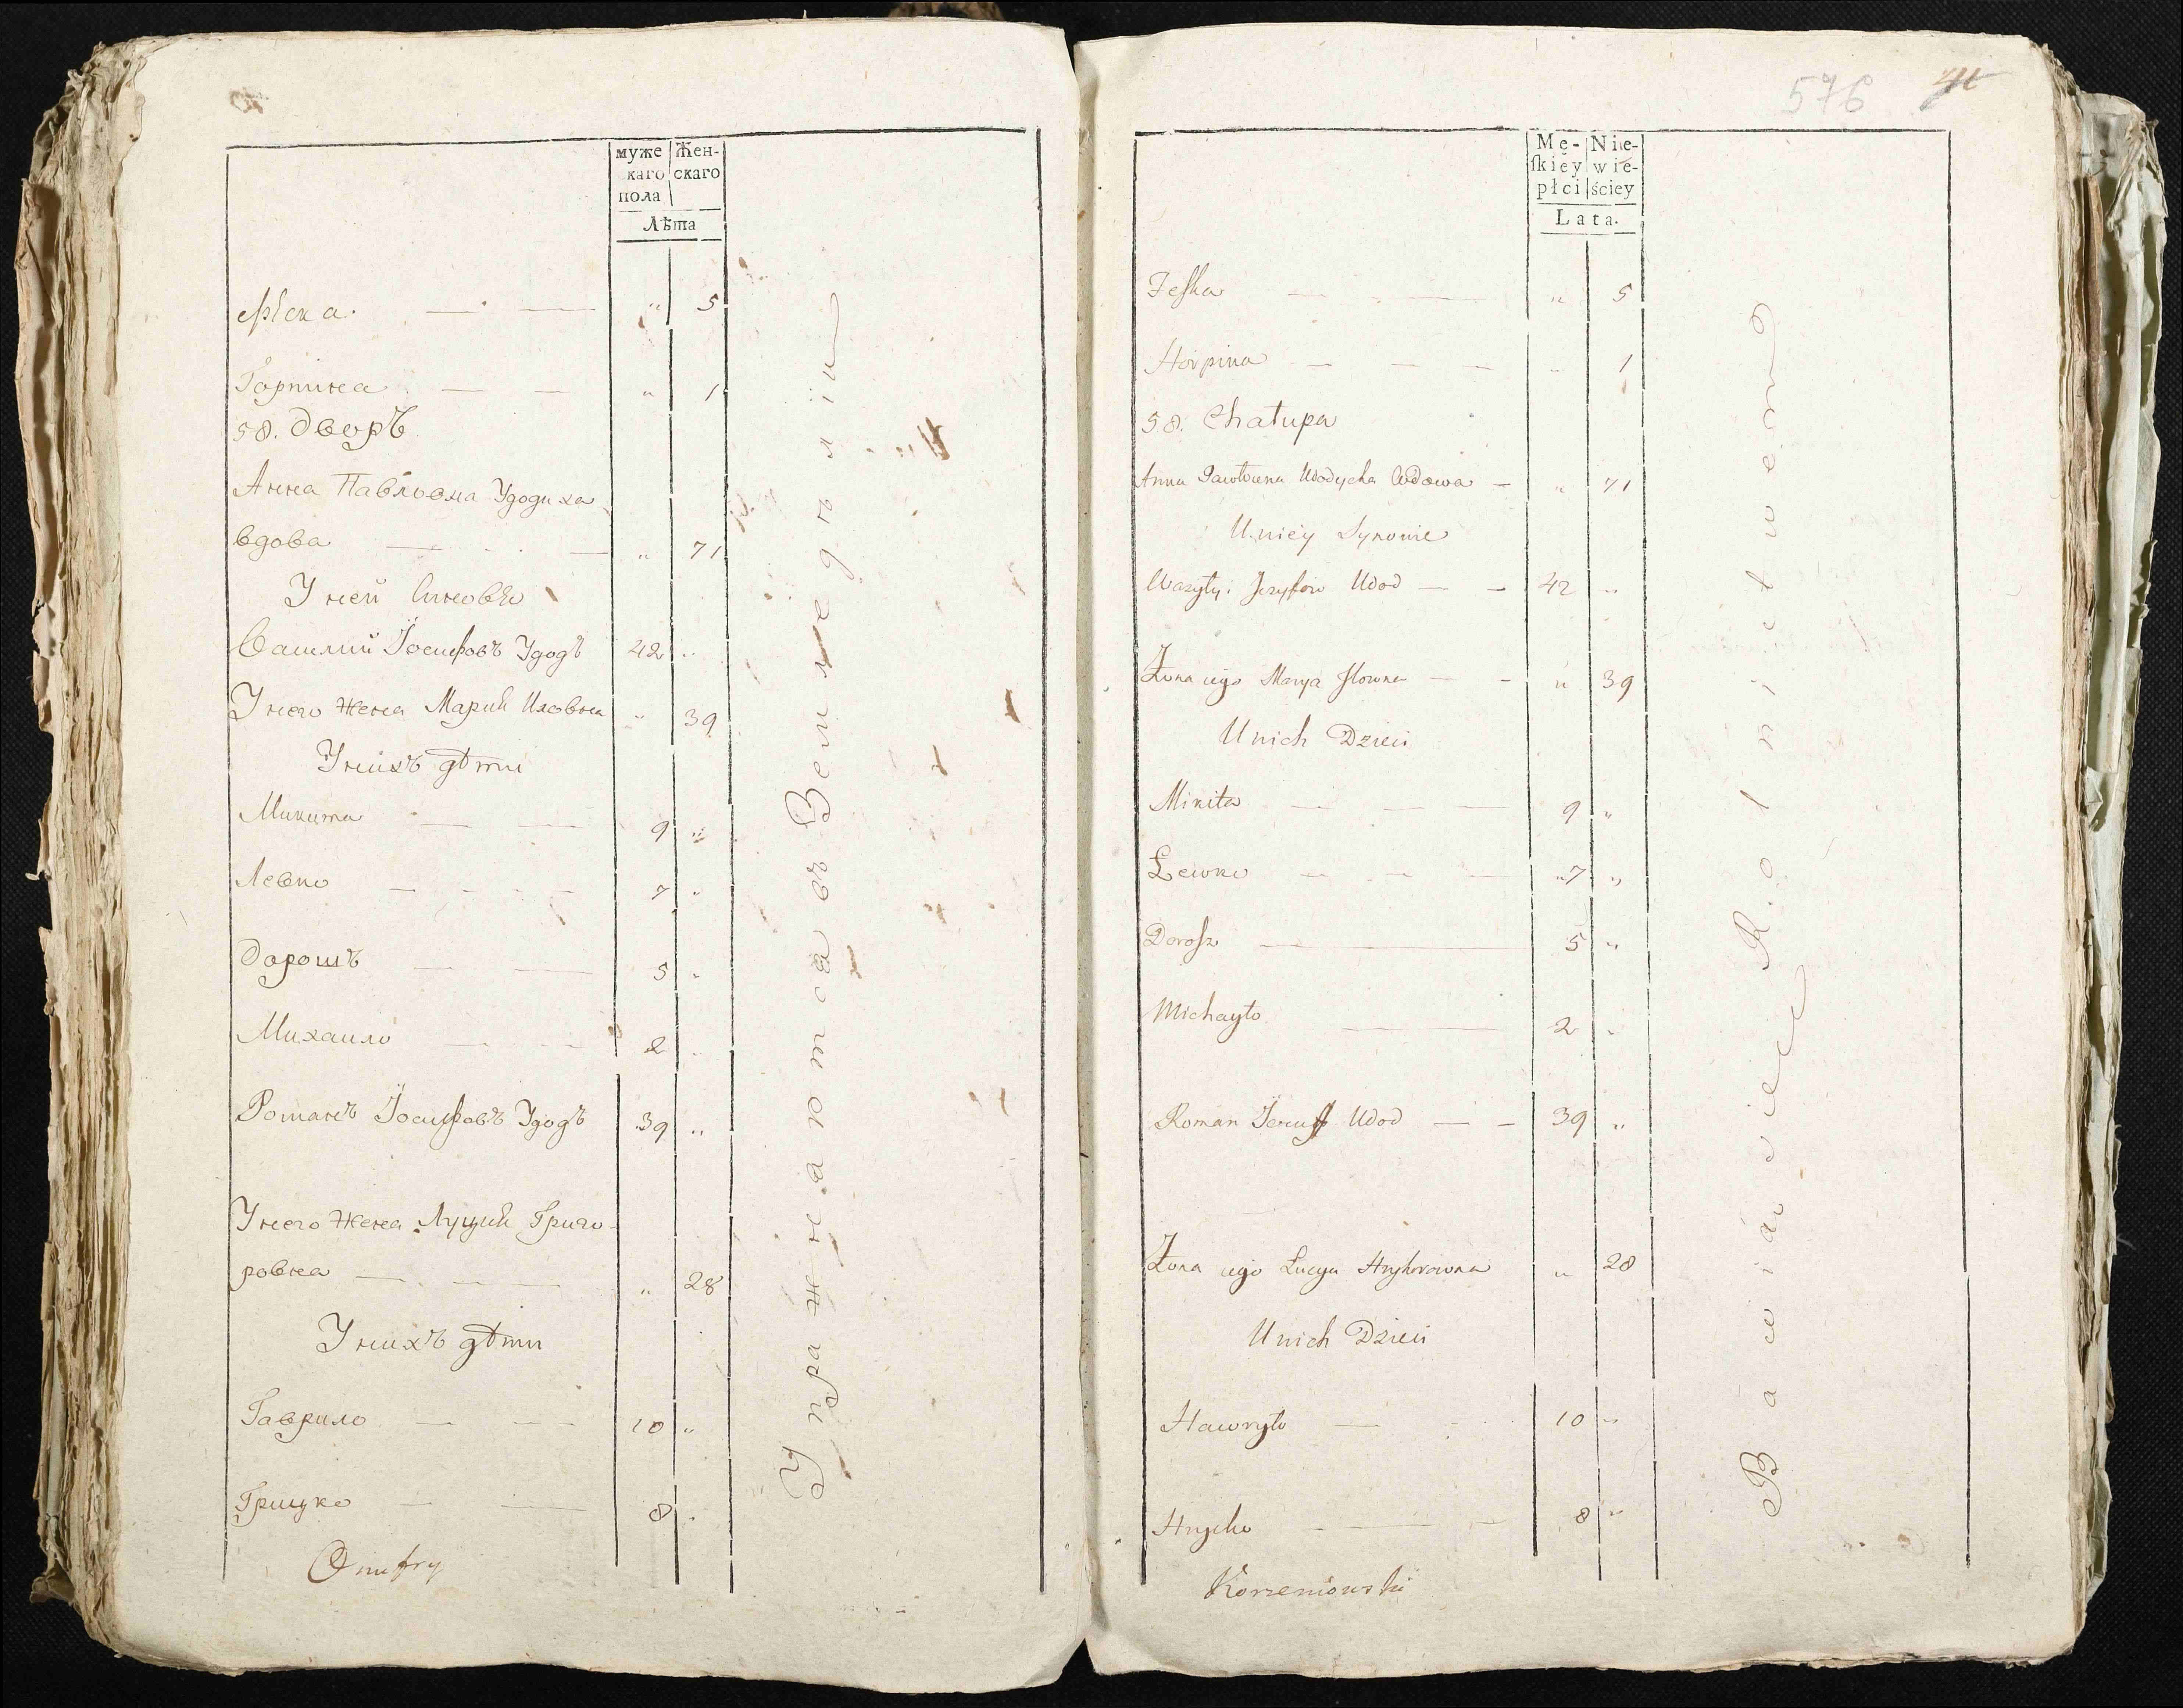 муже
каго
пола
Жен-
скаго
Лѣта
Ѳеска. " 5
Горпина " 1
58. Дворъ
Анна Павловна Удодиха
вдова " 71
У ней синовѣ
Василий Іосифовъ Удодъ 42 "
У него жена Мария Иловна " 39
У нихъ дѣти
Микита 9 "
Левко 7 "
Дорошъ 5 "
Михаило 2 "
Романъ Іосифовъ Удодъ 39 "
У него жена Луция Григо-
ровна " 28
У нихъ дѣти
Гаврило 10 "
Грицко 8 "
Onufry
Упражняются въ Земледѣліи
576
Mę-
skiey
płci
Nie-
wie-
ściey
Lata.
Feska " 5
Horpina " 1
58. Chałupa
Anna Pawłowna Udodycha Wdowa " 71
U niéy Synowie
Wazyłyi Jozyfow Udod 42 "
Żona iego Marya Ilowna " 39
U nich Dzieci
Mikita 9 "
Lewko 7 "
Dorosz 5 "
Michayło 2 "
Roman Udod 39 "
Żona iego Lucya Hryhorowna " 28
U nich Dzieci
Hawryło 10 "
Hrycko 8 "
Korzeniowski
Bawią się Rolnictwem